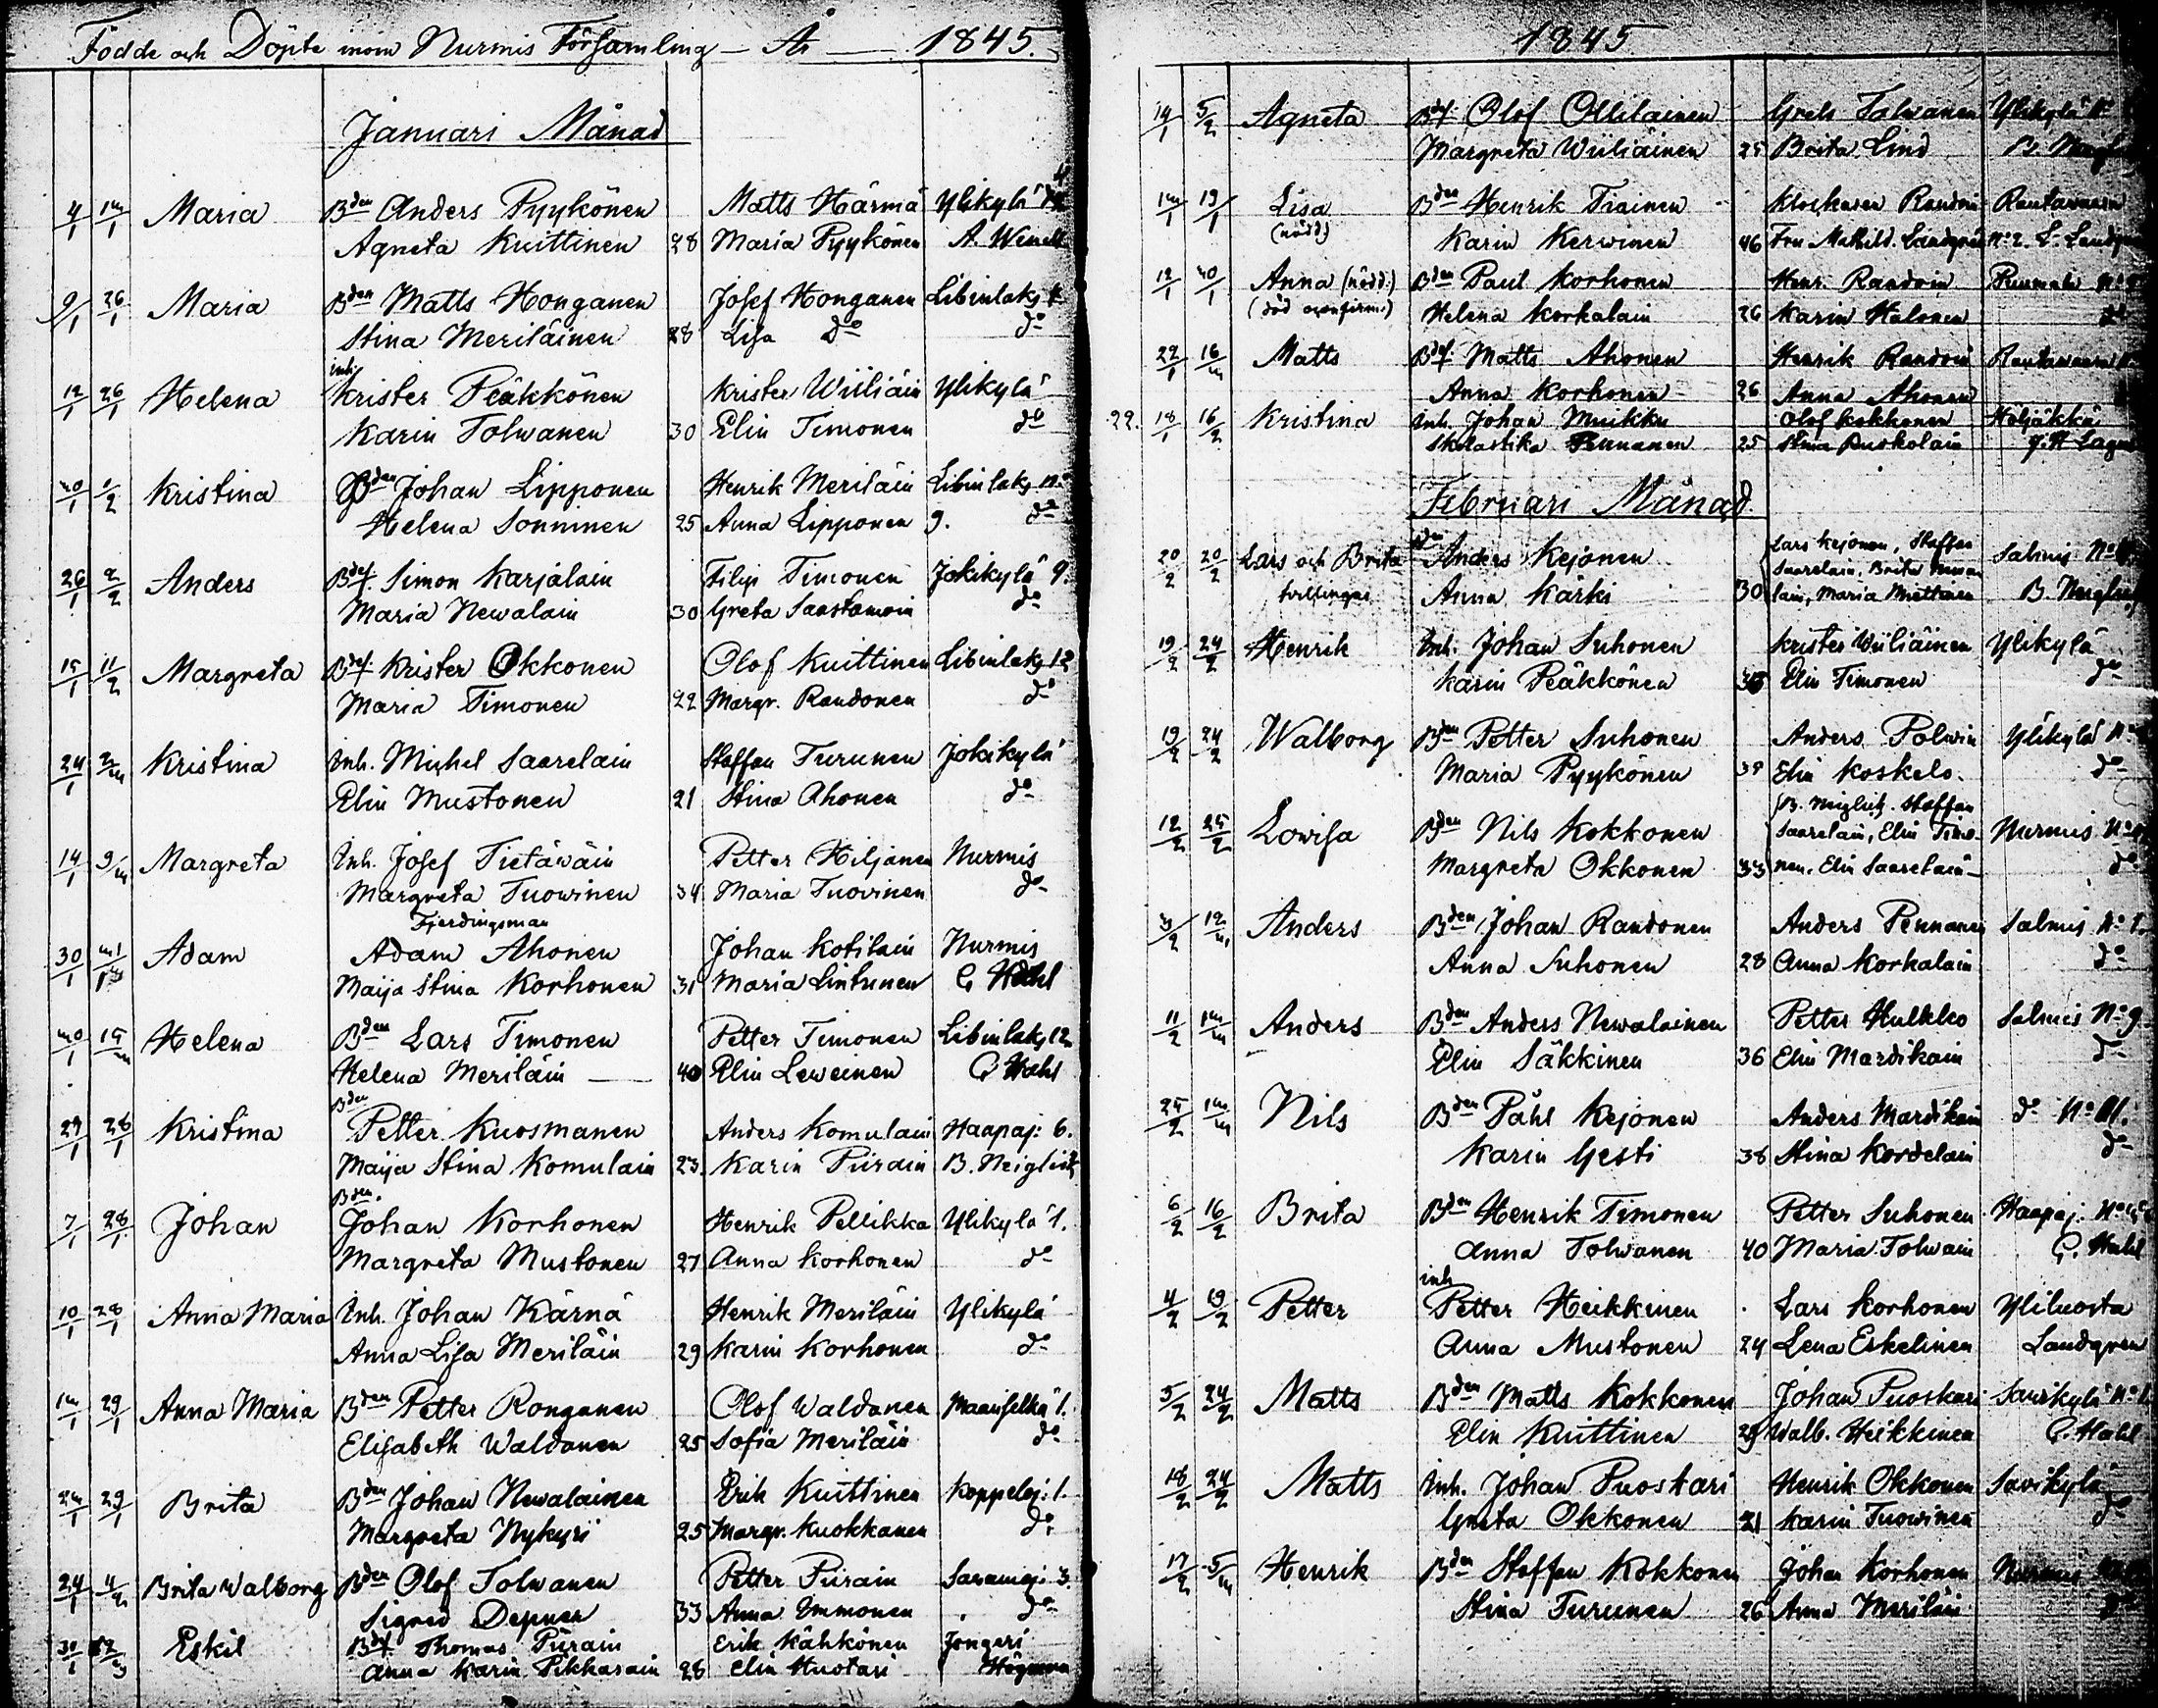 Födde och Döpte inom Nurmis Församling — År — 1845.
Januari Månad
4/1 Maria Bden Anders Pyykönen Matts Härmä Ylikylä
Agneta Kuittinen 28 Maria Pyykönen A. Wenell
9/1 26/1 Maria Bden Matts Honganen Josef Honganen Libinlaks
Stina Meriläinen 28 Lisa do do
inh.
12/1 26/1 Helena Krister Pääkkönen Krister Wiiliäin Ylikylä
Karin Tolwanen 30 Elin Timonen do
Kristina Bden Johan Lipponen Henrik Meriläin Libinlaks
Helena Sonninen 25 Anna Lipponen 9. do
26/1 2/2 Anders Bdf. Simon Karjalain Filip Timonen Jokikylä 9.
Maria Newalain 30 Greta Saastamoin do
15/1 11/2 Margreta Bdf. Krister Okkonen Olof Kuittinen Libinlaks 12
Maria Timonen 22 Margr. Randonen do
24/1 Kristina Inh. Michel Saarelain Staffan Turunen Jokikylä
Elin Mustonen 21 Stina Ahonen do
14/1 Margreta Inh. Josef Tietäwäin Petter Hiljanen Nurmis
Margreta Tuowinen 34 Maria Tuovinen do
Fjerdingsman
30/1 Adam Adam Ahonen Johan Kotilain Nurmis
Maija Stina Korhonen 31 Maria Lintunen C. Wahl
Helena Bden Lars Timonen Petter Timonen Libinlaks 12
Helena Meriläin — 40 Elin Leweinen C. Wahl
Bden
29/1 28/1 Kristina Petter Kuosmanen Anders Komulain Haapaj: 6.
Maija Stina Komulain 23. Karin Piirain B. Neiglick
Bden
7/1 28/1 Johan Johan Korhonen Henrik Pellikka Ylikylä 1.
Margreta Mustonen 27 Anna Korhonen do
10/1 28/1 Anna Maria Inh. Johan Kärnä Henrik Meriläin Ylikylä
Anna Lisa Meriläin 29 Karin Korhonen do
29/1 Anna Maria Bden Petter Ronganen Olof Waldanen Maanselkä 1.
Elisabeth Waldanen 25 Sofia Meriläin do
29/1 Brita Bden Johan Newalainen Erik Kuittinen Koppeloj: 1.
Margreta Nykyri 25 Margr. Kuokkanen do
24/1 Brita Walborg Bden Olof Tolwanen Petter Piirain Saramoj: 3.
Sigred Depner 33 Anna Immonen do
30/1 Eskil Bdf. Thomas Piirain Erik Kähkönen Jongeri
Anna Karin Pikkarain 28 Elin Huotari
1845
14/1 5/2 Agneta Bdf. Olof Ollilainen Greta Tolwanen Ylikylä
Margreta Wiiliäinen 25 Brita Lind
19/1 Lisa Bden Henrik Trainen Klockaren Randoin Rautawaara
(nödd) Karin Kerwinen 46 Fru Mathild. Landgren No 2. L. Landgren
12/1 Anna (nödd.) Bden Paul Korhonen Henr. Randoin
Helena Korhalain 26 Karin Halonen do
22/1 Matts Bdf. Matts Ahonen Henrik Randoin Rautawaara
Anna Korhonen 26 Anna Ahonen
22. 18/1 16/2 Kristina Inh. Johan Muikku Olof Kokkonen Höljäkkä
Skolastika Pennanen 25 Stina Ruskolain
Februari Månad
20/2 20/2 Lars och Brita Bden Anders Kejonen Lars Kejonen, Staffan Salmis No
Saarelain, Brita
tvillingar Anna Kärki 30 lain, Maria Miettinen B. Neiglick
19/2 24/2 Henrik Inh. Johan Suhonen Krister Wiiliäinen Ylikylä
Karin Pääkkönen Elin Timonen do
19/2 24/2 Walborg Bden Petter Suhonen Anders Polwin Ylikylä No
Maria Pyykönen Elin Koskelo. do
B. Neiglick. Staffan
12/2 25/2 Lowisa Bden Nils Kokkonen Saarelain, Elin Timo- Nurmis No
Margreta Okkonen 33 nen, Elin Saarelain do
3/2 Anders Bden Johan Randonen Anders Pennanen Salmis No 1.
Anna Suhonen 28 Anna Korhalain do
11/2 Anders Bden Anders Newalainen Petter Hulkko Salmis No 9
Elin Säkkinen 36 Elin Mardikain do
25/2 Nils Bden Påhl Kejonen Anders Mardikain do No
Karin Gesti 38 Stina Kordelain do
6/2 16/2 Brita Bden Henrik Timonen Petter Suhonen Haapaj. No
Anna Tolwanen 40 Maria Tolwain C. Wahl
inh.
4/2 19/2 Petter Petter Heikkinen Lars Korhonen Yliluosta
Anna Mustonen 24 Lena Eskelinen Landgren
5/2 24/2 Matts Bden Matts Kokkonen Johan Puoskari Savikylä No 1.
Elin Kuittinen 29 Walb. Heikkinen C. Wahl
18/2 24/2 Matts Inh. Johan Puoskari Henrik Okkonen Savikylä
Greta Okkonen 21 Karin Tuowinen do
17/2 Henrik Bden Staffan Kokkonen Johan Korhonen Nurmis
Stina Turunen 26 Anna Meriläin do